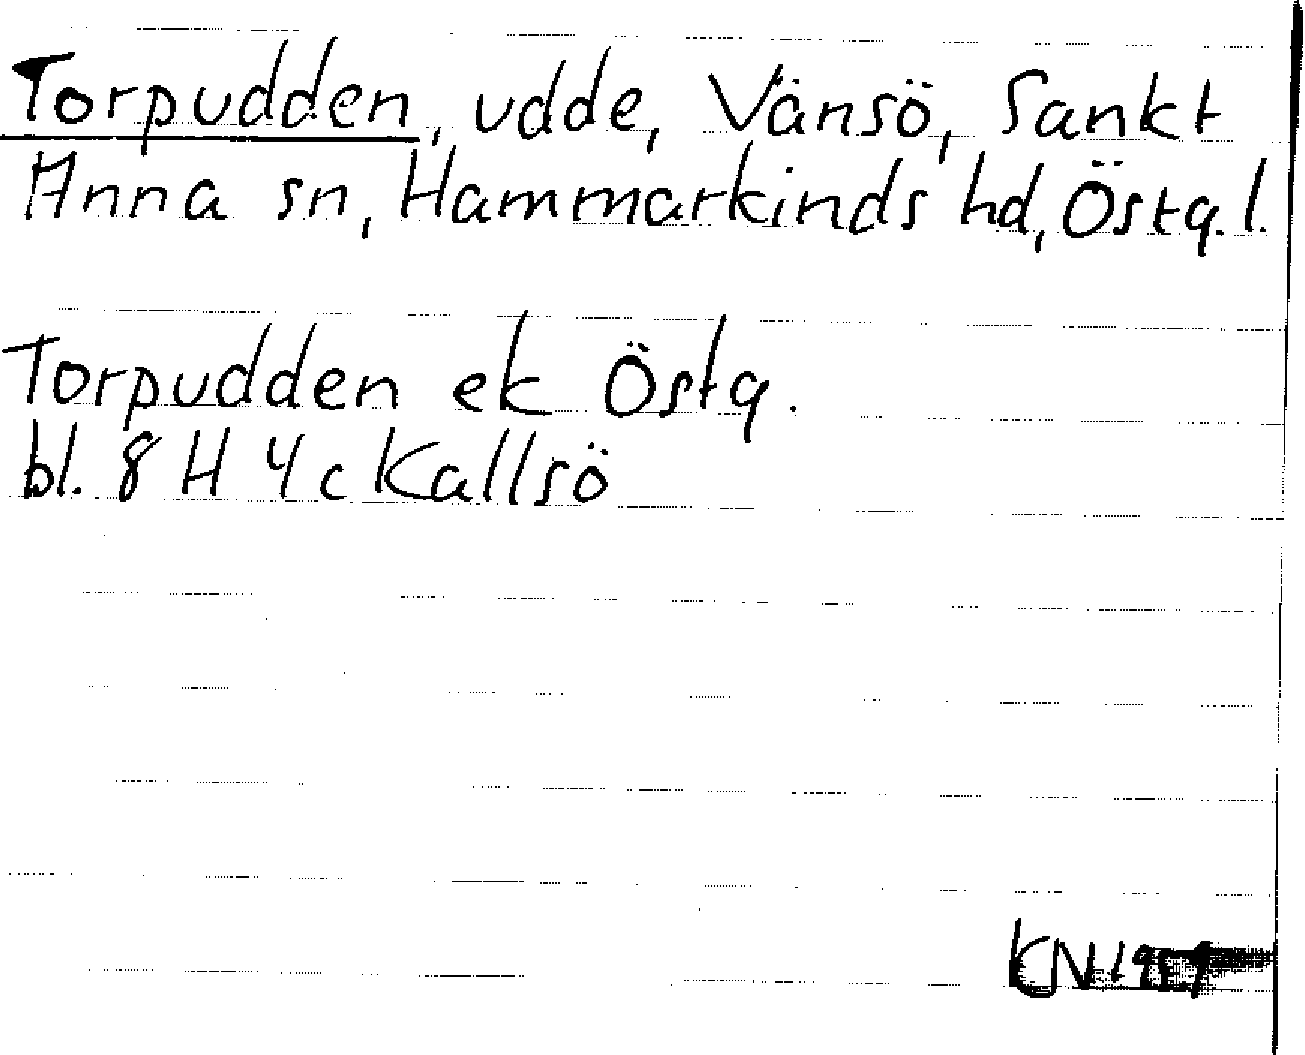 Torpudden, udde, Vänsö, Sankt
Anna sn, Hammarkinds hd, Östg. l.
Torpudden ek Östg.
bl. 8 H 4c Kallsö
KN